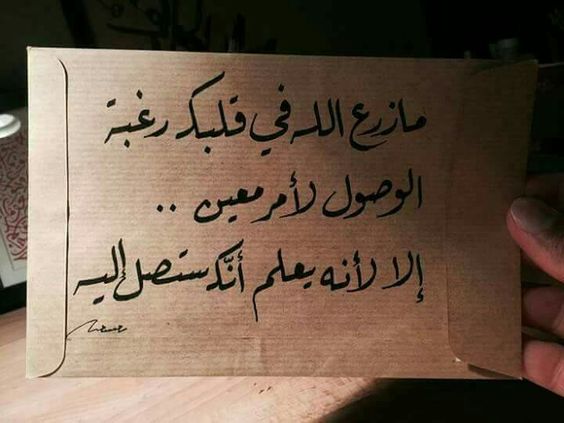 ما زرع الله في قلبك رغبة
الوصول لأمر معين ..
إلا لأنه يعلم أنّك ستصل إليه